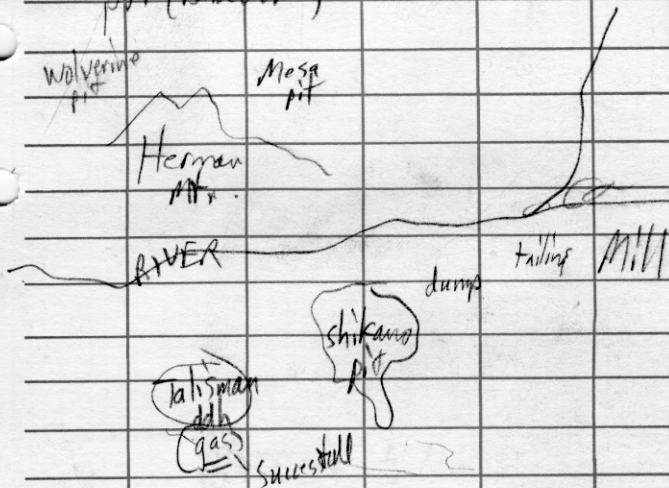 Wolverine
pit
Mesa
pit
Herman
Mt.
RIVER
tailing Mill
dump
shikano
pit
Talisman
ddh
(gas)